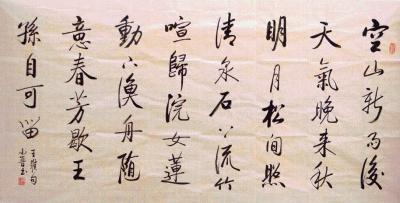 空山新雨後
天氣晚來秋
明月松間照
清泉石上流竹
喧歸浣女蓮
動下漁舟隨
意春芳歇王
孫自可留
王維句